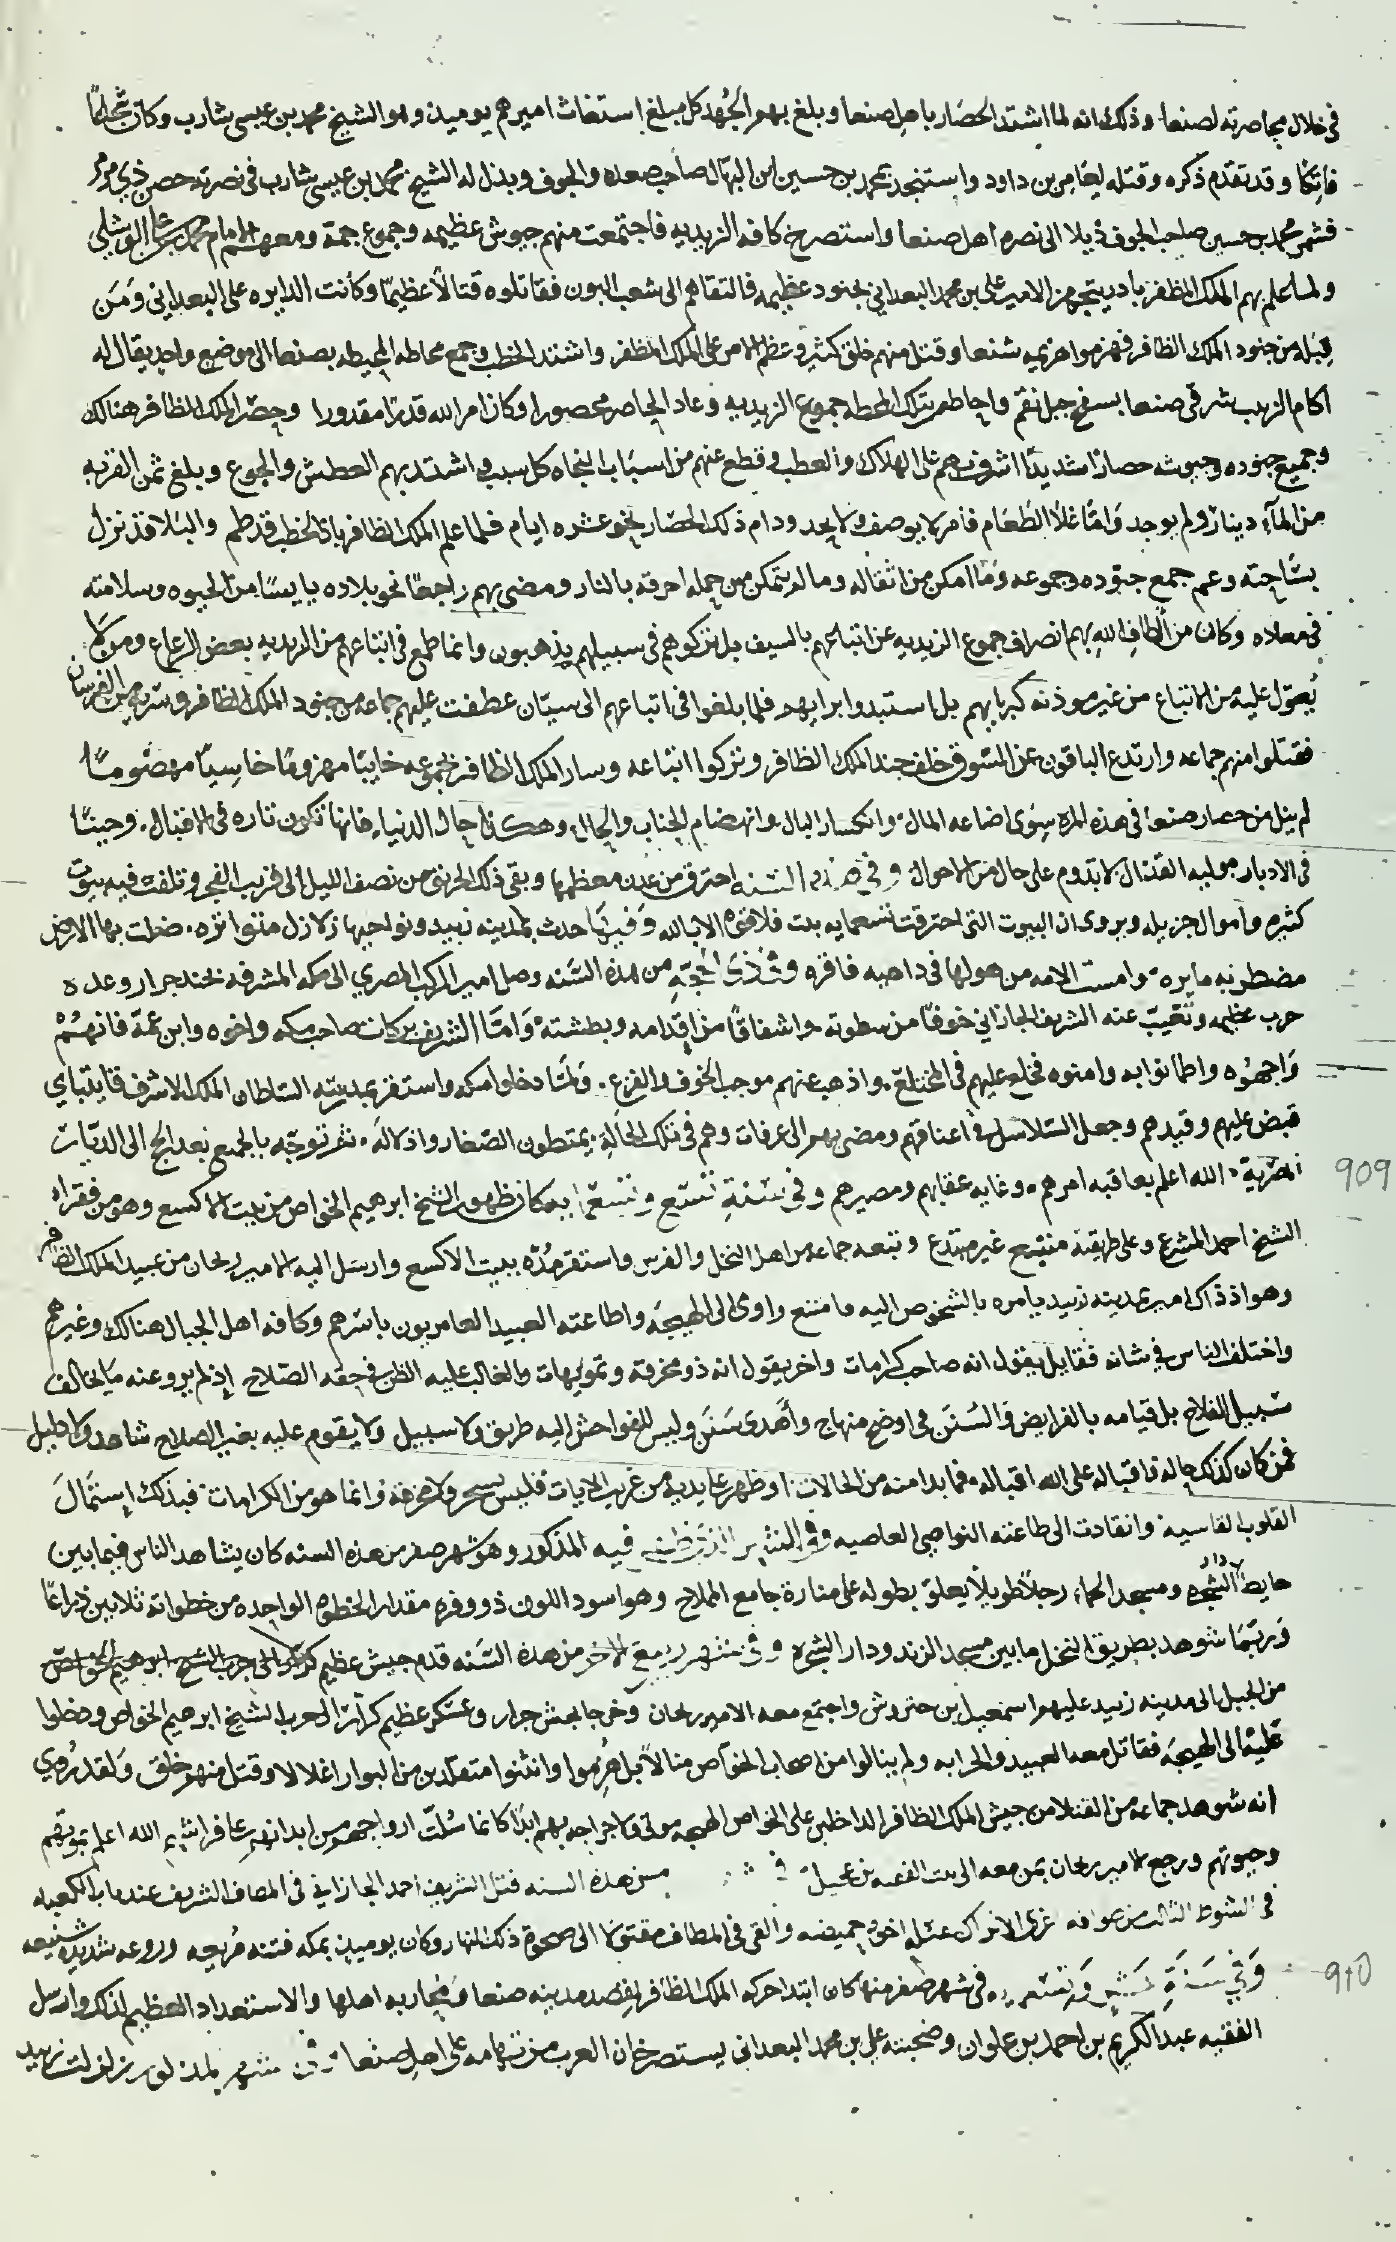 في خلال محاصرته لصنعا وذلك انه لما اشتد الحصار باهل صنعا وبلغ بهم الجهد كل مبلغ استغاث اميرهم يوميذ وهو الشيخ محمد بن عيسى شارب وكان شجاعا
فاتكا وقد تقدم ذكره وقتله لعامر بن داود واستنجد بمحمد بن حسين ابن البهال صاحب صعده والجوف وبذل له الشيخ محمد بن عيسى شارب في نصرته حصن ذي مرمر
فشمر محمد بن حسين صاحب الجوف ذيلا الى نصره اهل صنعا واستصرخ كافه الزيديه فاجتمعت منهم جيوش عظيمه وجموع جمة ومعهم الامام محمد بن علي الوشلي
ولما علم بهم الملك الظافر بادر بتجهيز الامير علي بن محمد البعداني بجنود عظيمه فالتقاهم الى شعب البون فقاتلوه قتالا عظيما وكانت الدايره على البعداني ومن
قبله من جنود الملك الظافر فهزموا هزيمه شنعا وقتل منهم خلق كثير وعظم الامر على الملك الظافر واشتد الخطب وجمع محاطه المحيطه بصنعا الى موضع واحد يقال له
اكام الزبيب شرقي صنعا بسفح جبل نقم واحاطت بتلك المحطه جموع الزيديه وعاد المحاصر محصورا وكان امر الله قدرا مقدورا وحصر الملك الظافر هنالك
وجميع جنوده وجيوشه حصارا شديدا اشرف بهم على الهلاك والعطب وقطع عنهم من اسباب النجاه كل سبب واشتد بهم العطش والجوع وبلغ ثمن القربه
من المآء دينار ولم يوجد واما غلا الطعام فامر لا يوصف ولا يحد ودام ذلك الحصار نحو عشره ايام فلما علم الملك الظافر بان الخطب قد طم والبلا قد نزل
بساحته وعم جمع جنوده وجموعه وما امكن من اثقاله وما لم يتمكن من حمله احرقه بالنار ومضى بهم راجعا نحو بلاده يايسا من الحيوه وسلامته
في معاده وكان من الطاف الله بهم انصراف جموع الزيديه عن اتباعهم بالسيف بل تركوهم في سبيلهم يذهبون وانما طمع في اتباعهم من الزيديه بعض الرعاع ومن لا
يعول عليه من الاتباع من غير موذنه كبرايهم بل استبدوا برايهم فلما بلغوا في اتباعهم الى سيان عطفت عليهم جماعه من جنود الملك الظافر وسريه من الفرسان
فقتلوا منهم جماعه وارتدع الباقون عن التسوق خلف جند الملك الظافر وتركوا اتباعه وسار الملك الظافر بجموعه خايبا مهزوما خاسيا مهضوما
لم ينل من حصار صنعا في هذه المره سوى اضاعه المال وانكسار البال وانهضام الجناب والحال وهكذا حال الدنيا فانها تكون تاره في الاقبال وحينا
في الادبار لا تدوم على حال من الاحوال وفي هذه السنه احترق من عدن معظمها وبقي ذلك الحريق من نصف الليل الى قريب الفجر وتلفت فيه بيوت
كثيره واموال جزيله ويروى ان البيوت التي احترقت تسعمايه بيت فلا قوه الا بالله وفيها حدث بمدينه زبيد ونواحيها زلازل متواتره ضلت بها الارض
مضطربه مايره وامست الامه من هولها في داهيه فاقره وفي ذي الحجة من هذه السنه وصل امير الركب المصري الى مكه المشرفه بجند جرار وعده
حرب عظيمه وتغيب عنه الشريف الجازاني خوفا من سطوته واشفاقا من اقدامه وبطشته واما الشريف بركات صاحب مكه واخوه وابن عمه فانهم
واجهوه واطمانوا به وامنوه فخلع عليهم في المختلع واذهب عنهم موجب الخوف والفزع ولما دخلوا مكه واستقر بمدرسة السلطان الملك الاشرف قايتباي
قبض عليهم وقيدهم وجعل السلاسل في اعناقهم ومضى بهم الى عرفات وهم في تلك الحاله يمتطون الصغار والاذلاله ثم توجه بالجميع بعد الحج الى الديار
المصرية الله اعلم بعاقبه امرهم وغايه عقباهم ومصيرهم وفي سنة تسع وتسعمايه كان ظهور الشيخ ابرهيم الخواص من بيت الاكسع وهو من فقراء
909
الشيخ احمد المشرع وعلى طريقته متبع غير مبتدع وتبعه جماعه من اهل النخل والفرس واستقر مده ببيت الاكسع وارسل اليه الامير ريحان من عبيد الملك الظافر
وهو اذ ذاك امير بمدينه زبيد يامره بالشخوص اليه فامتنع واوى الى الهيجه واطاعته العبيد العامريون باسرهم وكافه اهل الجبال هنالك وغيرهم
واختلف الناس في شانه فقايل يقول انه صاحب كرامات واخر يقول انه ذو مخرقه وتمويهات والغالب عليه الظن في حقه الصلاح اذ لم يرو عنه ما يخالف
سبيل الفلاح بل قيامه بالفرايض والسنن في اوضح منهاج واهدى سنن وليس للفواحش اليه طريق ولا سبيل ولا يقوم عليه بغير الصلاح شاهد ولا دليل
فمن كان كذلك حاله فاقباله على الله اقباله فما بدا منه من الحالات او ظهر على يديه من غريب الايات فليس بسحر ولا مخرقه وانما هو من الكرامات فبذلك استمال
القلوب القاسيه وانقادت الى طاعته النواصي العاصيه وفي الشهر الذي ظهر فيه المذكور وهو شهر صفر من هذه السنه كان يشاهد الناس فيما بين
حايط دار الشجره ومسجد الحماد رجلا طويلا يعلو بطوله على منارة جامع الملاح وهو اسود اللون ذو وفره مقدار الخطوه الواحده من خطواته ثلاثين ذراعا
وربما شوهد بطريق النخل ما بين مسجد الزند ودار الشجره وفي شهر ربيع الاخر من هذه السنه قدم جيش عظيم
من الجبل الى مدينه زبيد عليهم اسمعيل بن حتروش واجتمع معه الامير ريحان وخرجا بجيش جرار وعسكر عظيم كرار الى حرب الشيخ ابرهيم الخواص ودخلوا
عليه الى الهيجه فقاتل معه العبيد والحرابه ولم ينالوا من اصحاب الخواص منالا بل هزموا وانثنوا متقلدين من البوار اغلالا وقتل منهم خلق ولقد روي
انه شوهد جماعه من القتلا من جيش الملك الظافر الداخلين على الخواص الهيجه موتى ولا جراحه بهم ابدا كانما سلت ارواحهم من ابدانهم الله اعلم بموتهم
وحيوتهم ورجع الامير ريحان بمن معه الى بيت الفقيه بن عجيل وفي من هذه السنه قتل الشريف احمد الجازاني في المطاف الشريف عند باب الكعبه
في الشوط الثالث من طوافه والقي في المطاف مقتولا الى ضحوة ذلك النهار وكان يوميذ بمكه فتنه مريجه وروعه شديده شنيعه
وفي سنة عشر وتسعمايه في شهر صفر منها كان ابتدا حركه الملك الظافر لقصد مدينه صنعا ومحاربه اهلها والاستعداد العظيم لذلك وارسل
910
الفقيه عبد الكريم بن احمد بن علوان وصحبته علي بن محمد البعداني يستصرخان العرب من تهامه على اهل صنعا وفي شهر المذكور زلزلت زبيد